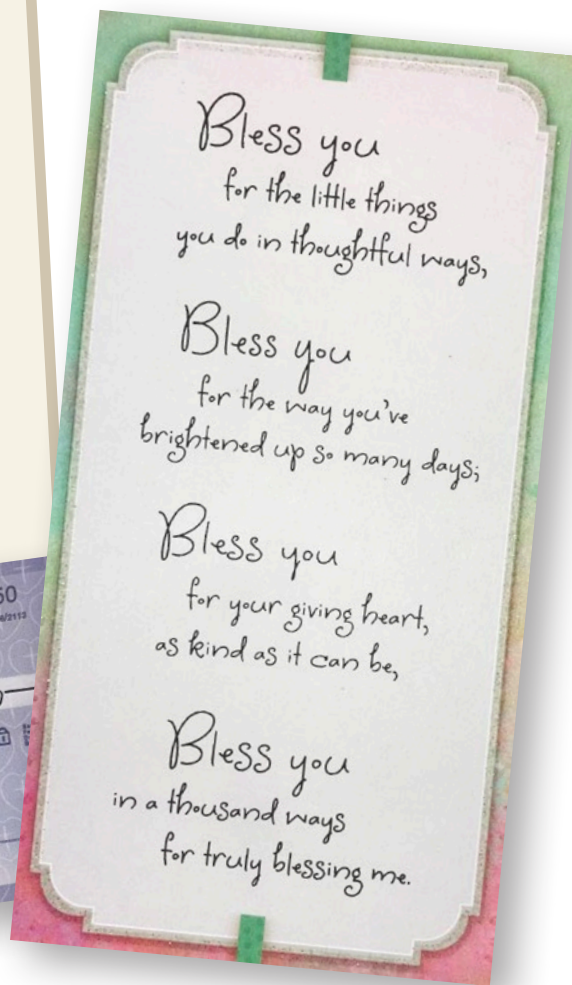 Bless you
for the little things
you do in thoughtful ways,
Bless you
for the way you've
brightened up so many days;
Bless you
for your giving heart,
as kind as it can be,
Bless you
in a thousand ways
for truly blessing me.